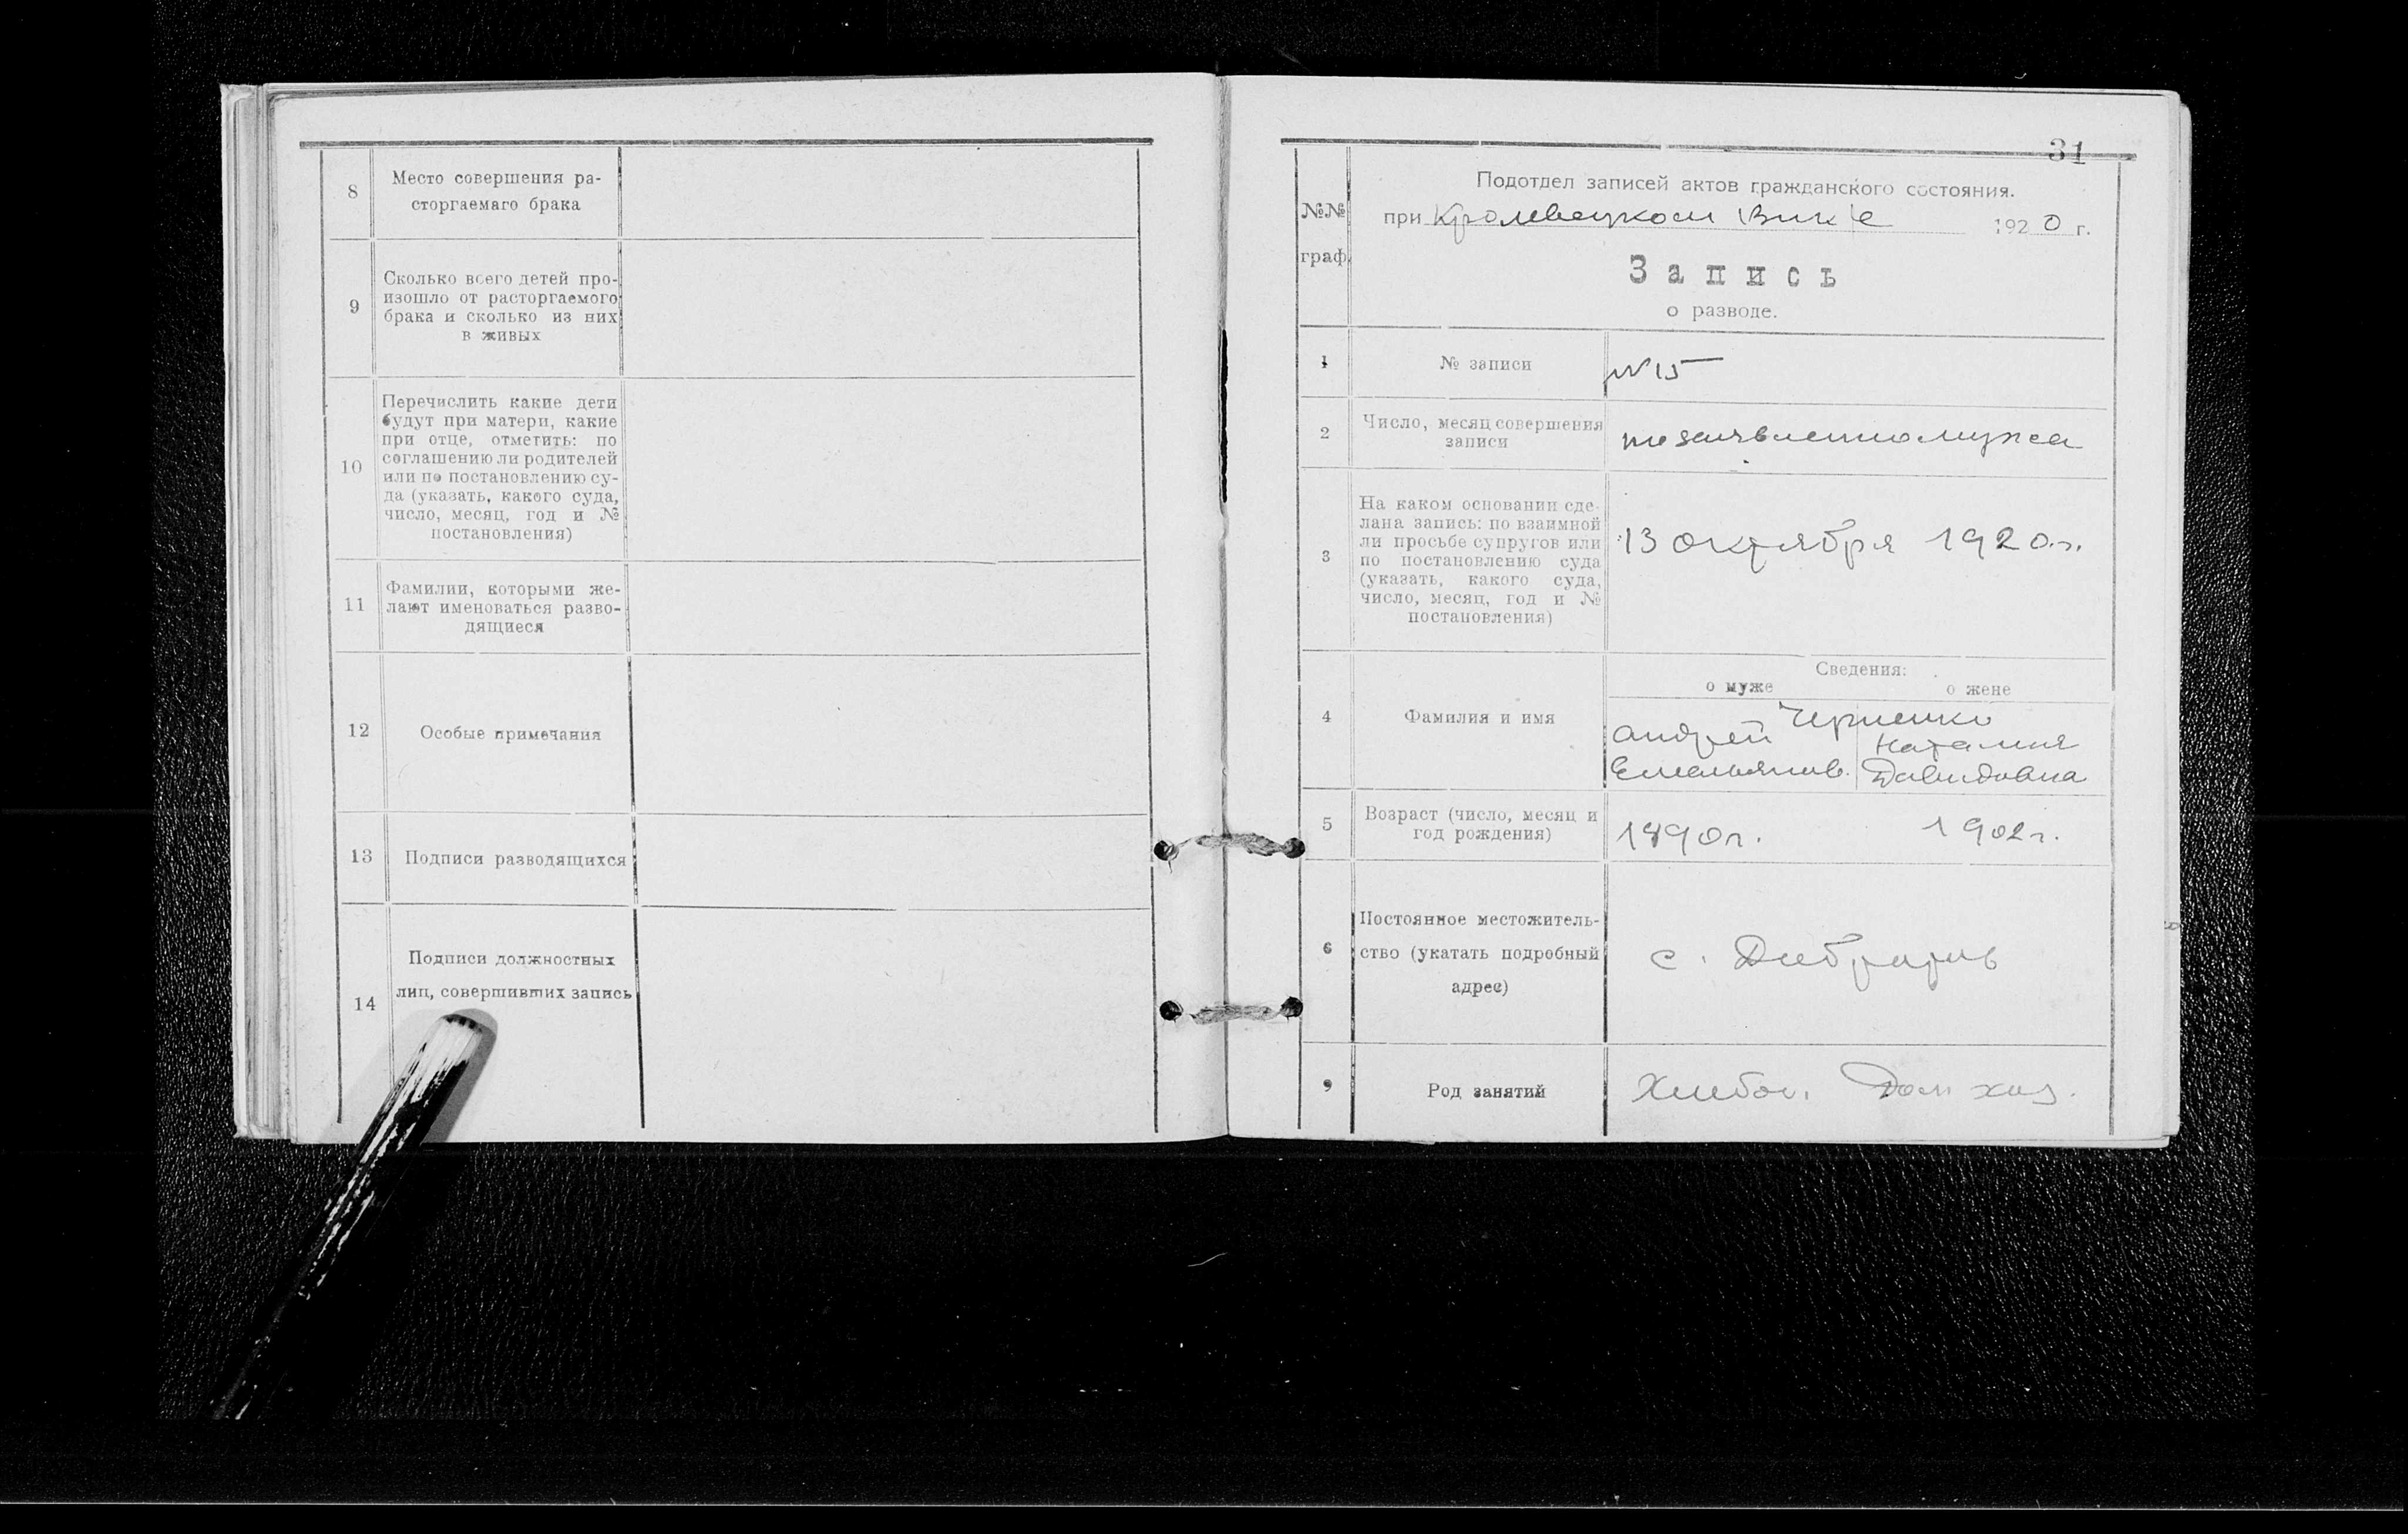 8
Место совершения ра-
сторгаемаго брака
9
Сколько всего детей про-
изошло от расторгаемого
брака и сколько из них
в живых
10
Перечислить какие дети
будут при матери, какие
при отце, отметить: по
соглашению ли родителей
или по постановлению су-
да (указать, какого суда,
число, месяц, год и №
постановления)
11
Фамилии, которыми же-
лают именоваться разво-
дящиеся
12
Особые примечания
13
Подписи разводящихся
14
Подписи должностных
лиц, совершивших запись
31
№№
граф.
Подотдел записей актов гражданского состояния.
при Кролевецком Вик е 1920 г.
Запись
о разводе.
1
№ записи
№15
2
Число, месяц совершения
записи
по заявлению мужа
3
На каком основании сде-
лана запись: по взаимной
ли просьбе супругов или
по постановлению суда
(указать, какого суда,
число, месяц, год и №
постановления)
13 октября 1920 г.
4
Фамилия и имя
Сведения:
о муже о жене
Черненко
Андрей Наталия
Емельянов. Давидовна
5
Возраст (число, месяц и
год рождения)
1890 г. 1902 г.
6
Постоянное местожитель-
ство (укатать подробный
адрес)
с.
9
Род занятий
Хлебоп. Дом хоз.